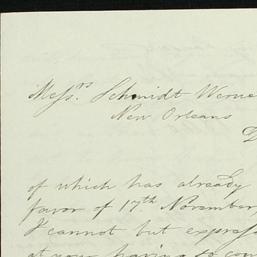 Messrs. Schmidt Werne
New Orleans
D
of which has already
favor of 17th November,
I cannot but express
at your having so con